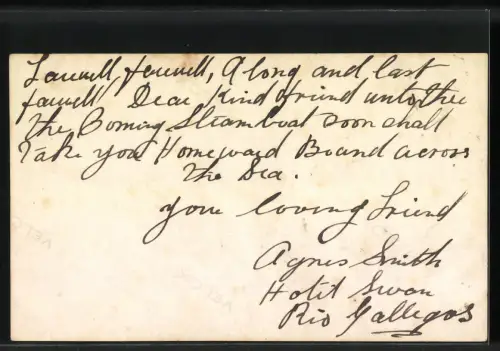 Farwell, farwell, A long and last
farwell Dear Kind friend unto thee
the Boming Steam boat soon shall
Take you Homeward Bound across
the Sea.
your loving Friend
Agnes Smith
Hotel Swan
Rio Gallegos